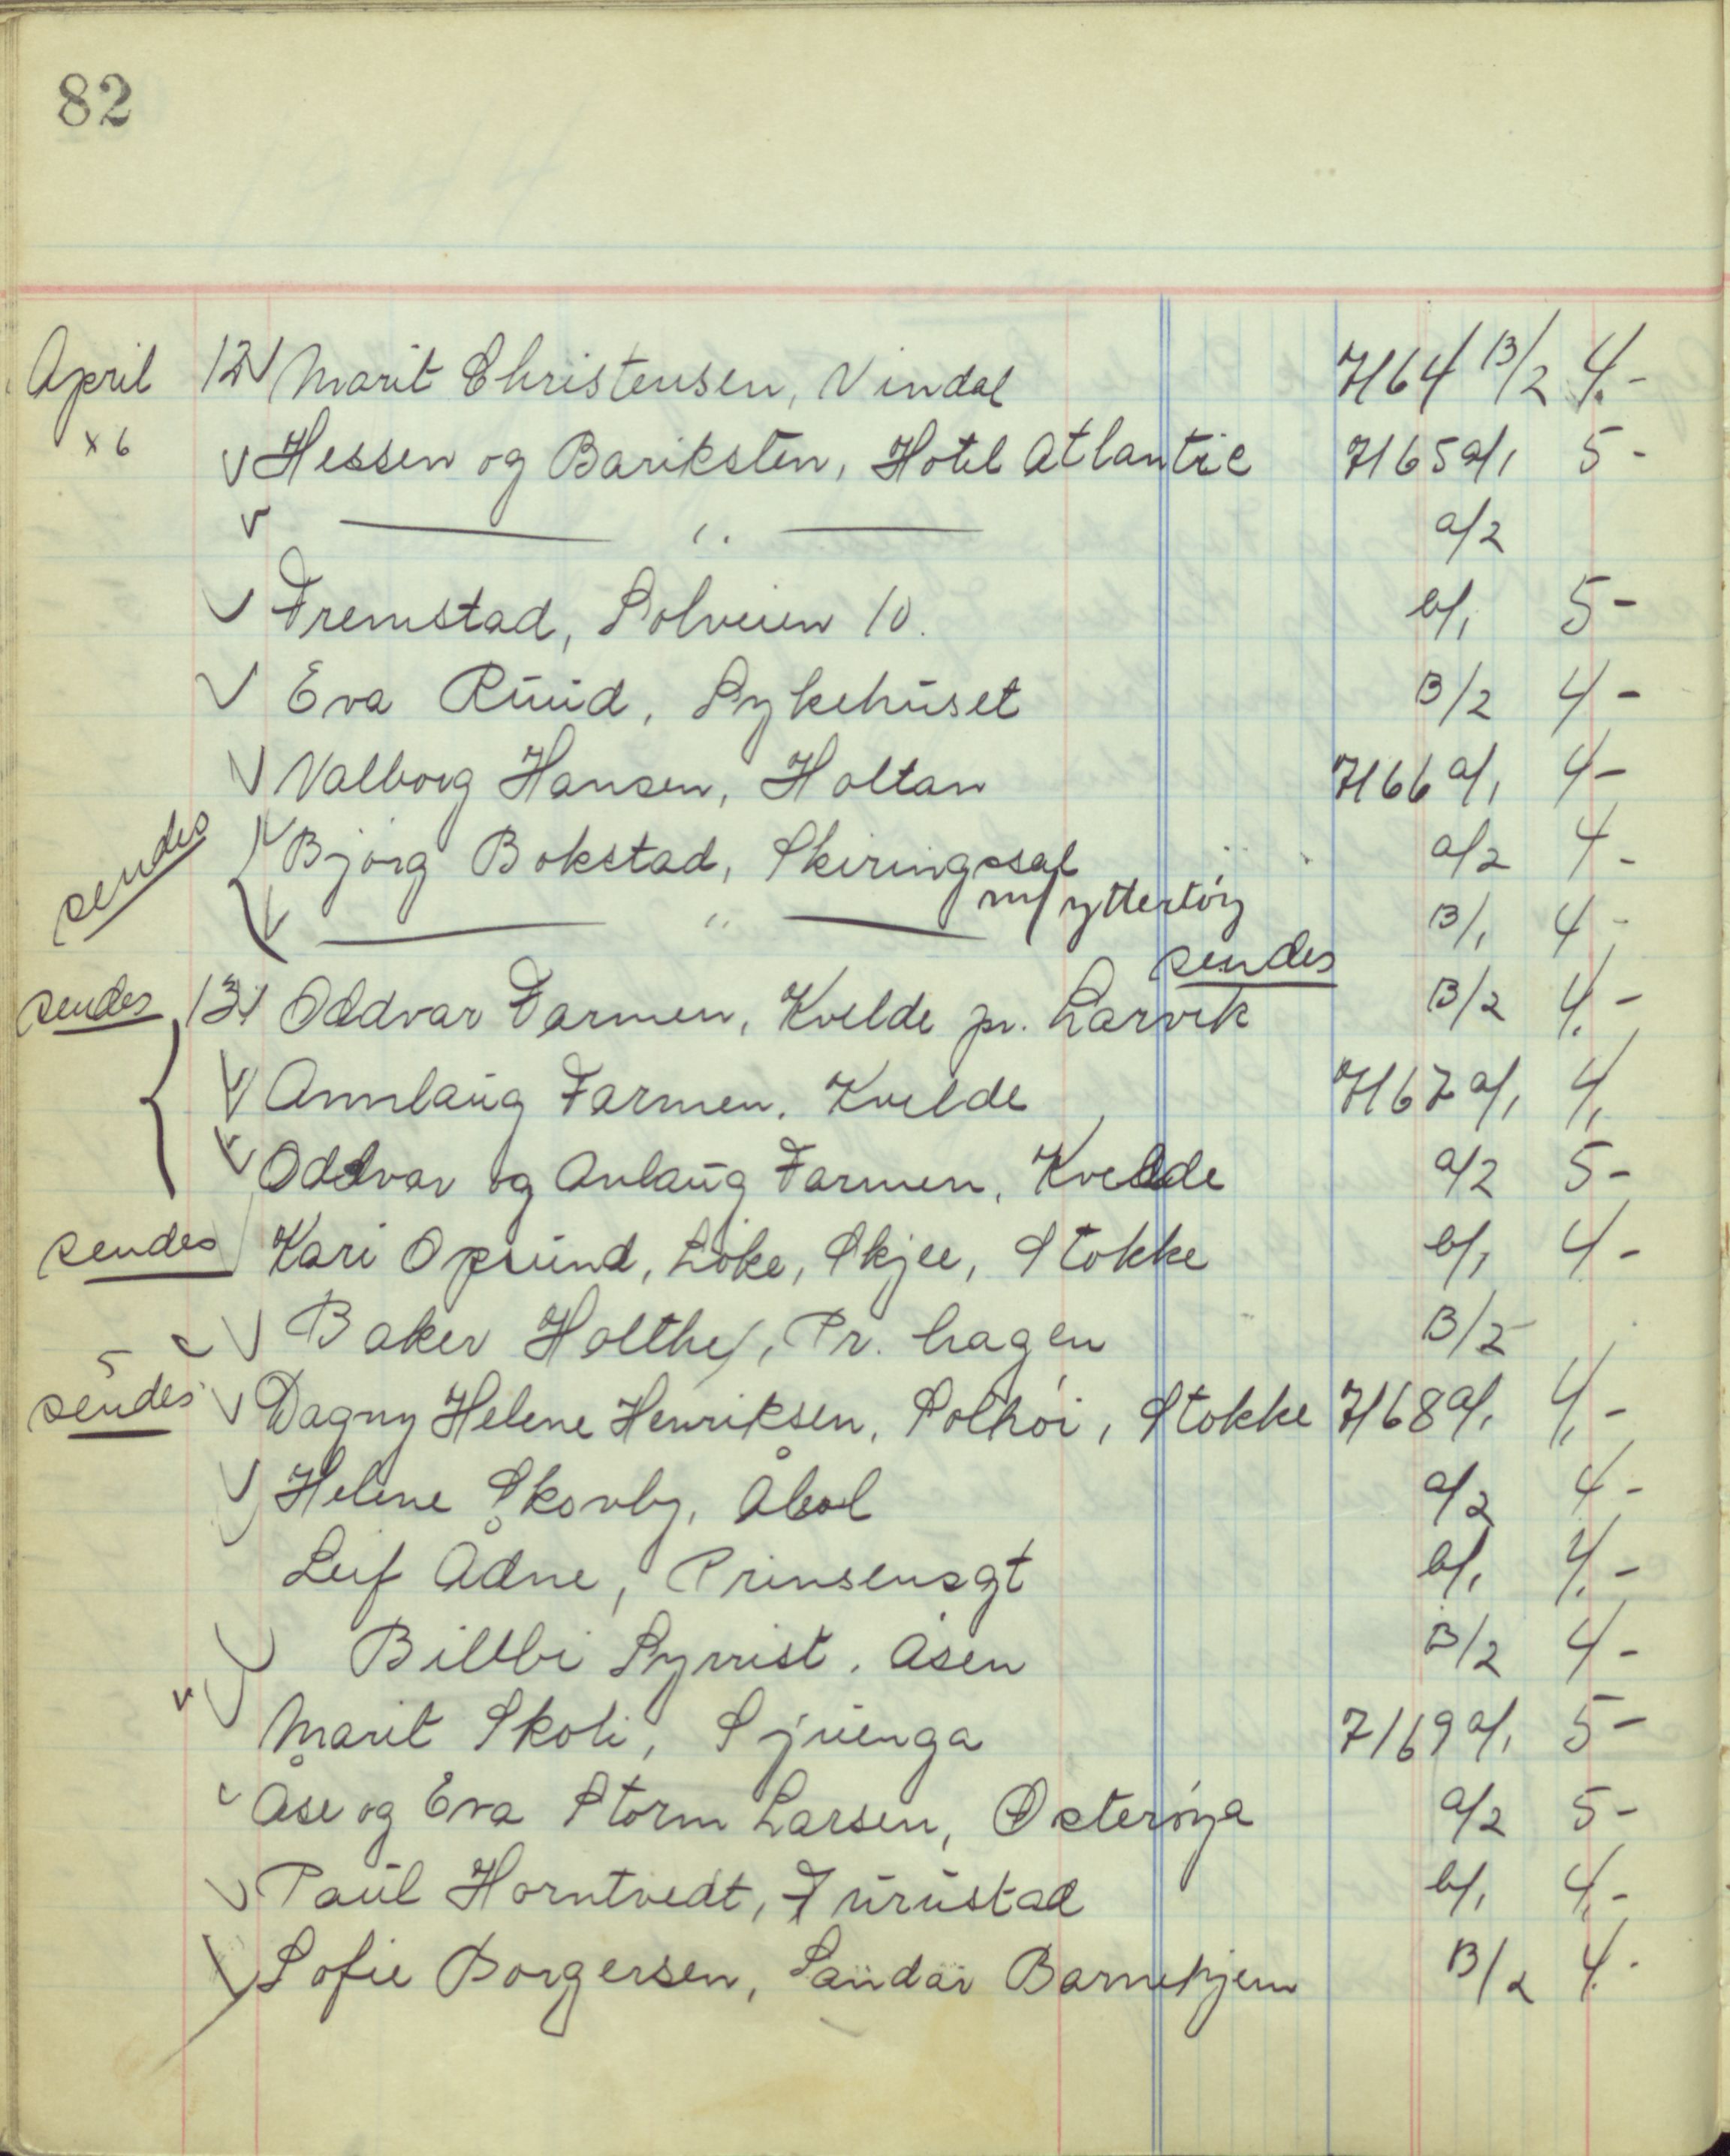 82
April 12 Marit Christensen, Vindal 7164 B/2 4.-
x 6 Hessen og Bariksten, Hotel Atlantic 7165 a/1 5-
" a/2
Fremstad, Solveien 10. b/1 5-
Eva Ruud, Sykehuset B/2 4-
Valborg Hansen, Holtan 7166 a/1 4-
sendes Bjørg Bokstad, Skiringssal a/2 4-
" m/yttertöy B/1 4-
sendes
sendes 13 Oddvar Farmen, Kvelde pr. Larvik B/2 4.-
Annlaug Farmen, Kvelde 7167 a/1 4,
Oddvar og Anlaug Farmen, Kvelde a/2 5-
sendes Kari Opsund, Løke, Skjee, Stokke b/1 4-
Baker Holthe, Pr. hagen B/2
5
sendes Dagny Helene Henriksen, Solhøi, Stokke 7168 a/1 4,-
Helene Skovby, Åbol a/2 4-
Leif Ådne, Prinsensgt b/1 4.-
Billbi Syrrist, Åsen B/2 4-
Marit Skoli, Sjuenga 7169 a/1 5-
Åse og Eva Storm Larsen, Østerøya a/2 5-
Paul Horntvedt, Furustad b/1 4,-
Sofie Borgersen, Sandar Barnehjem B/2 4.-